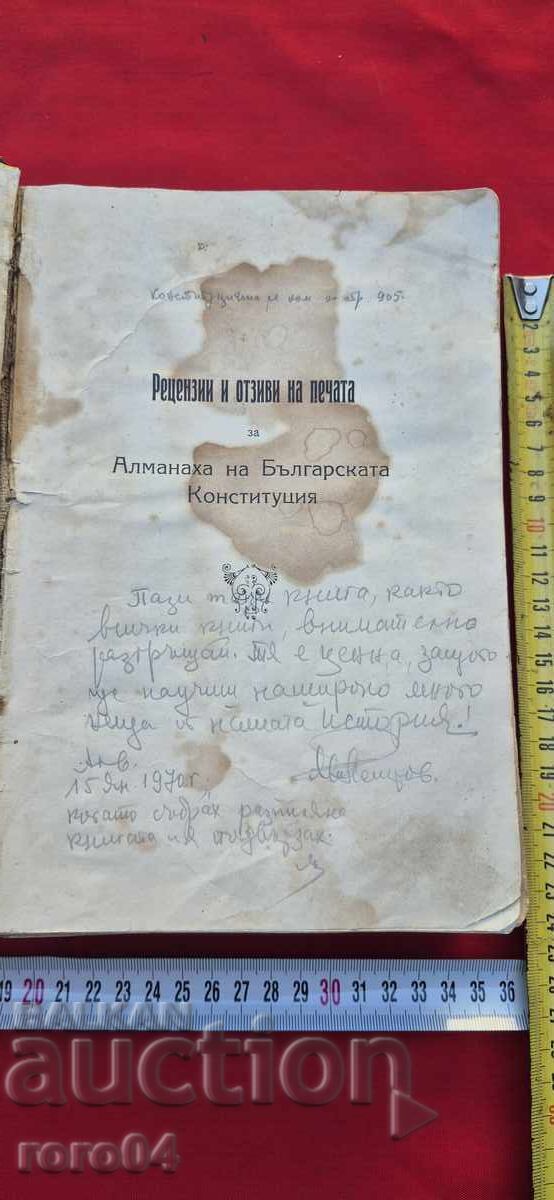 Рецензии и отзиви на печата
за
Алманаха на Българската
Конституция
Пази книга, както
всички книги, внимателно
разгръщай. Тя е ценна, защото
ще научиш нашироко много
неща от нашата история!
15 Ян. 1970 г.
когато събрах разпиляна
книгата и я подвързах.
19 20 21 22 23 24 25 26 27 28 29 30 31 32 33 34 35 36
2 3 4 5 6 7 8 9 10 11 12 13 14 15 16 17 18 19 20 21 22 23 24 25 26 27 28 29 30
BALKAN
auction
roro04